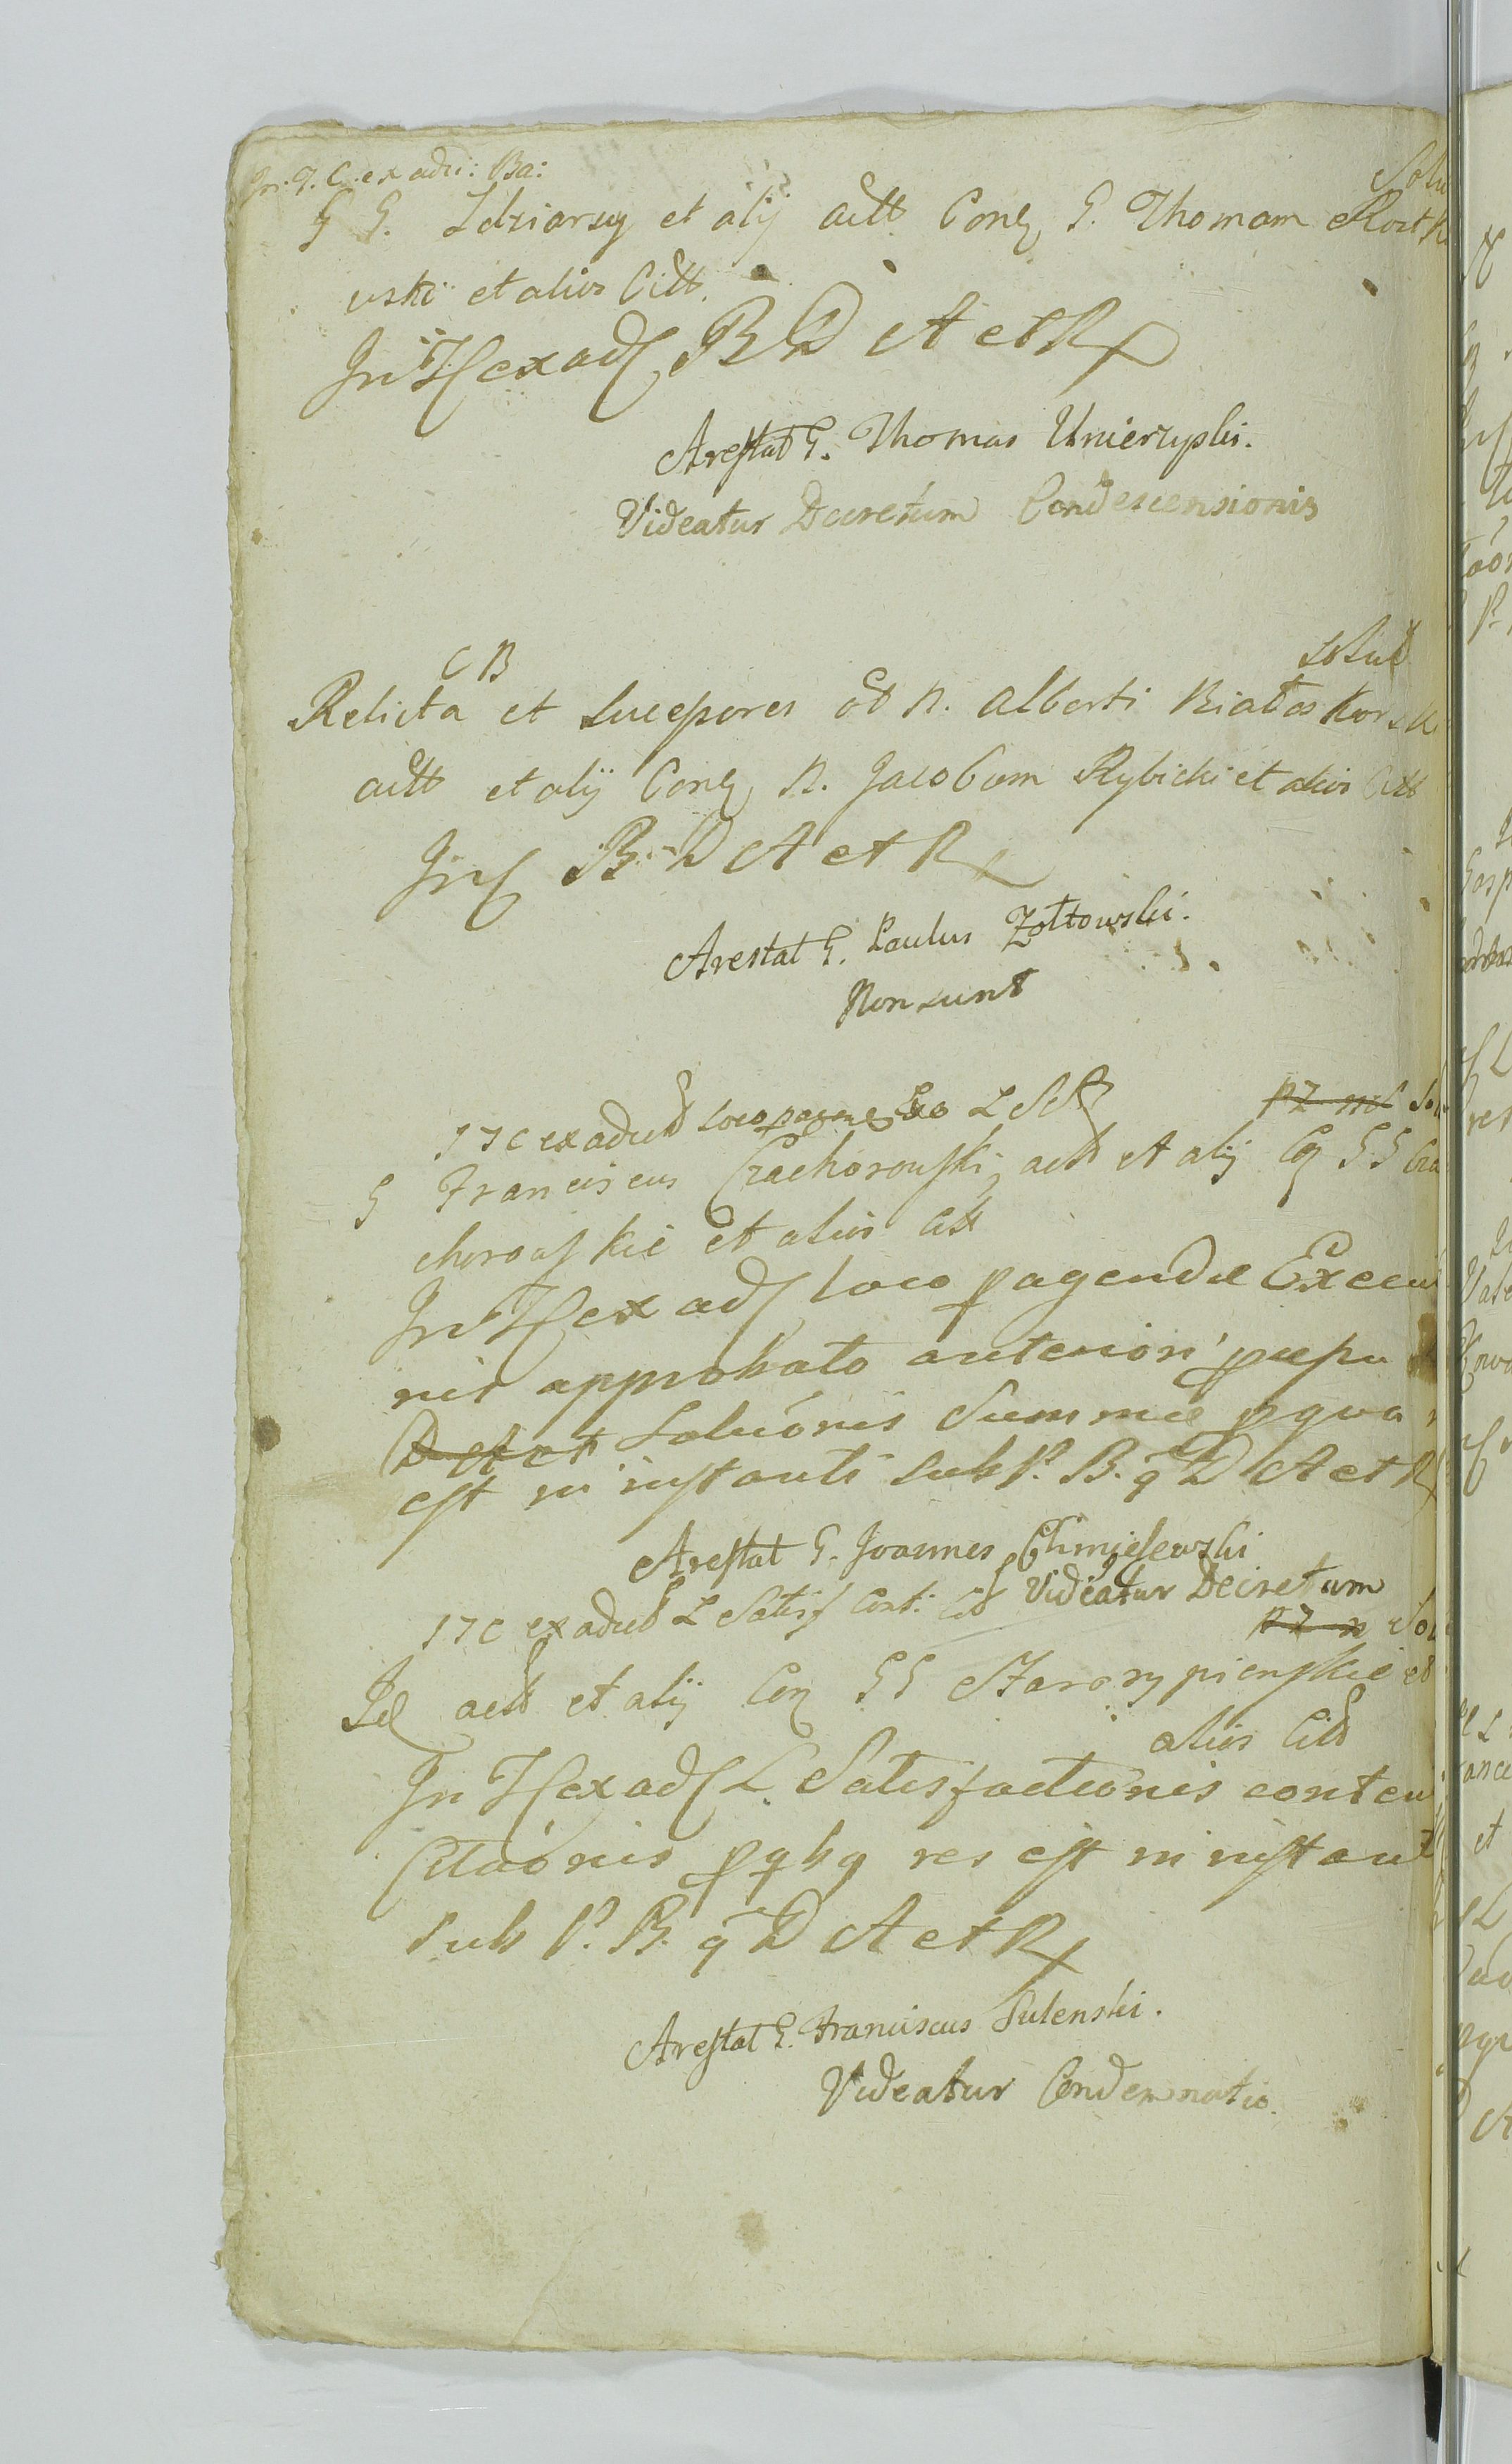 In. J. C. ex adci: Ba:
Solu
G G. Zdziarscy et alij actt Conq G. Thomam Rostk
uski et alios Citt.
In H ex adC B D A et R
Arestat G. Thomas Unierzyski.
Videatur Decretum Condescensionis
C B
Solut
Relicta et Sucesores ot N. Alberti Białoskorsk
actt et alij Conq N. Jacobum Rybicki et alios Citt
In B. D A et R
Arestat G. Paulus Zołtowski.
Non sunt
J J C ex aduct loco pagne Exo L S
G Franciscus Czachorowski actt et alij Cq G G Cza
chorowskie et alios Citt
In H ex adC loco pagendae Execu
nis approbato anteriori
D A et Soluónis Summae pqua
est in instanti sub P. B. q D A et R
Arestat G. Joannes Chmielewski
Videatur Decretum
J J C ex aduct L Satisf Cont: Cit
Id actt et alij Cq G G Starorypienskie et
alios Citt
In H ex adC L. Satisfactionis conten
Citaónis pqbq res est in instant
sub P. B. q D A et R
Arestat G. Franciscus Sulenski.
Videatur Condemnatio.